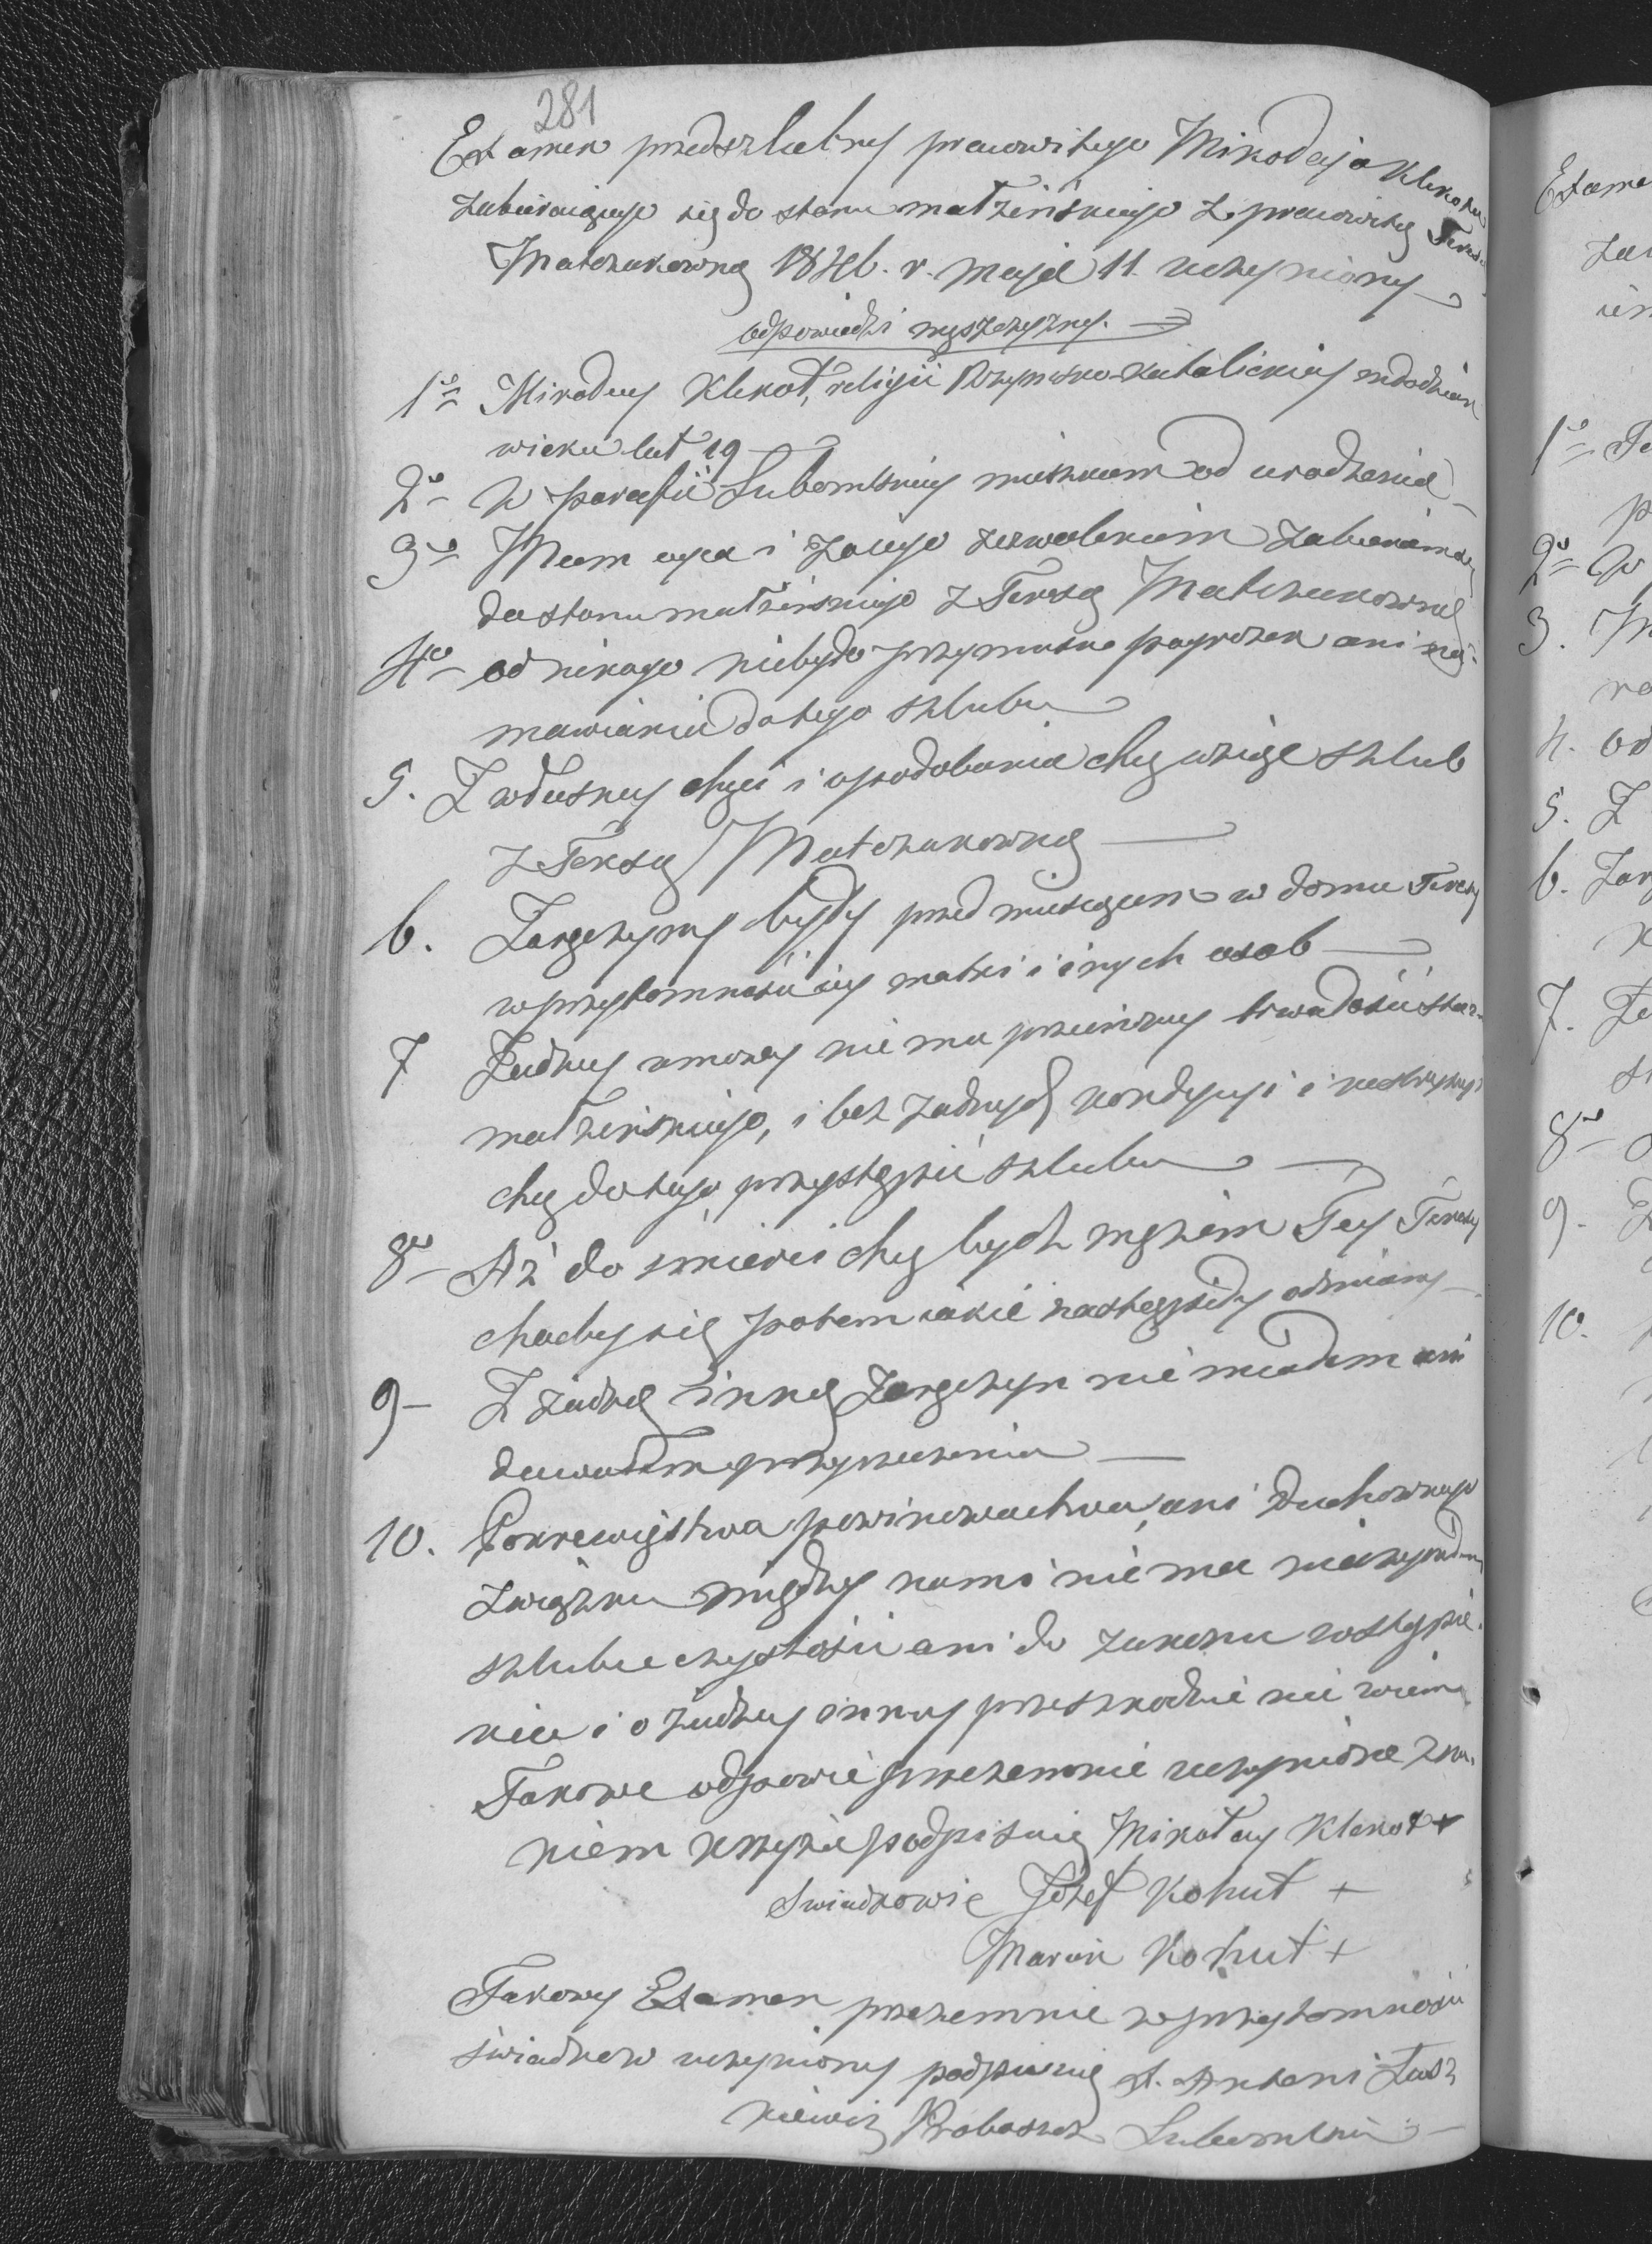 281
Examen przedszlubny pracowitego Mikołaja Klekota
zabieraiącego się do stanu małżeńskiego z pracowitą Teresą
Matczakowną 1846. r. Maja 11. uczyniony
odpowiedzi męszczyzny.
1o Mikołay Klekot, religii Rzymsko-Katolickiey młodzian
wieku lat 19
2o w parafii Lubomlskiey mieszkam od urodzenia
3o Mam oyca i za iego zezwoleniem zabieram się
do stanu małżeńskiego z Teresą Matczakowną
4o od nikogo niebyło przymusu pogrozek ani na-
mawiania do tego szlubu
5. Z własney chęci i upodobania chcę wziąść szlub
z Teresą Matczakowną
6. Zaręczyny były przed miesiącem w domu Teresy
w przytomności iey matki i inych osob
7 Żadney umowy nie ma przeciwney trwałości stanu
małżeńskiego, i bez żadnych kondycyi i restrykcyi
chcę do tego przystąpić szlubu
8o Aż do śmierci chcę bydź mężem Tey Teresy
choćby się potem iakie nastąpiły odmiany
9 Z żadną inną zaręczyn nie miałem ani
dawałem przyrzeczenia
10. Pokrewięstwa powinowactwa, ani duchownego
związku między nami nie ma nieczyniłem
szlubu czystości ani do zakonu wstąpie-
nia i o żadney inney przeszkodzie nie wiem
Takowe odpowie przezemnie uczynione zna-
kiem krzyża podpisuię Mikołay Klekot +
Swiadkowie Józef Kohut +
Marcin Kohut +
Takowy Examen przezemnie w przytomności
świadkow uczyniony podpisuię X. Antoni Łusz
kiewicz Proboszcz Lubomlski
Exame